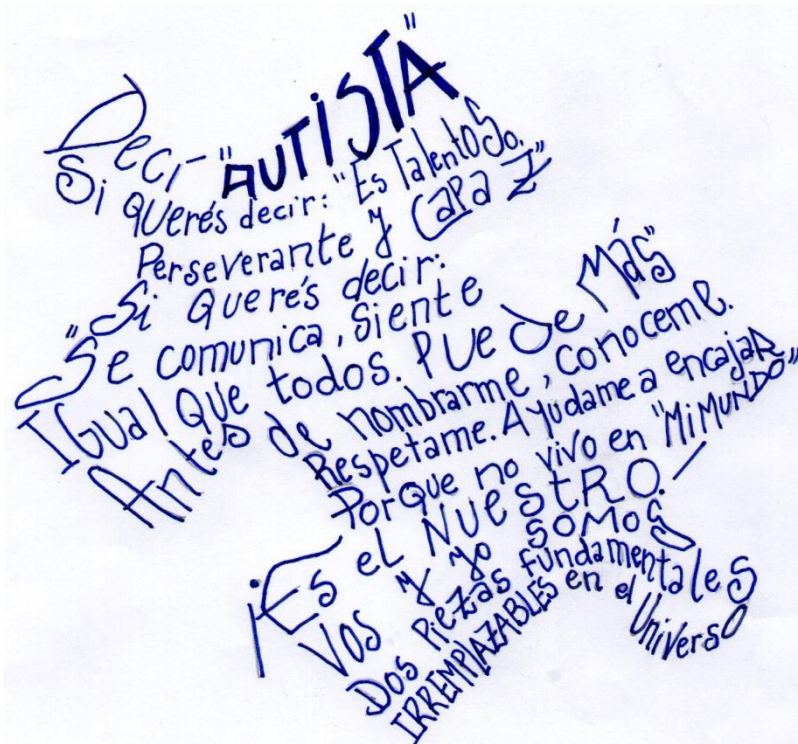 Decí- "AUTISTA"
Si QUerés decir: "Es TalentOSo.
Perseverante y CapaZ"
Si QUerés decir:
"Se comunica, Siente
IGual QUe todos. PUede Más"
Antes de nombrarme, conoceme.
Respetame. Ayudame a encajaR
Porque no vivo en "Mi MUNDO"
¡Es eL NUestRO.-
Vos y yo SOMOS
Dos Piezas fundamentaleS
IRREMPLAZABLES en el UniversO